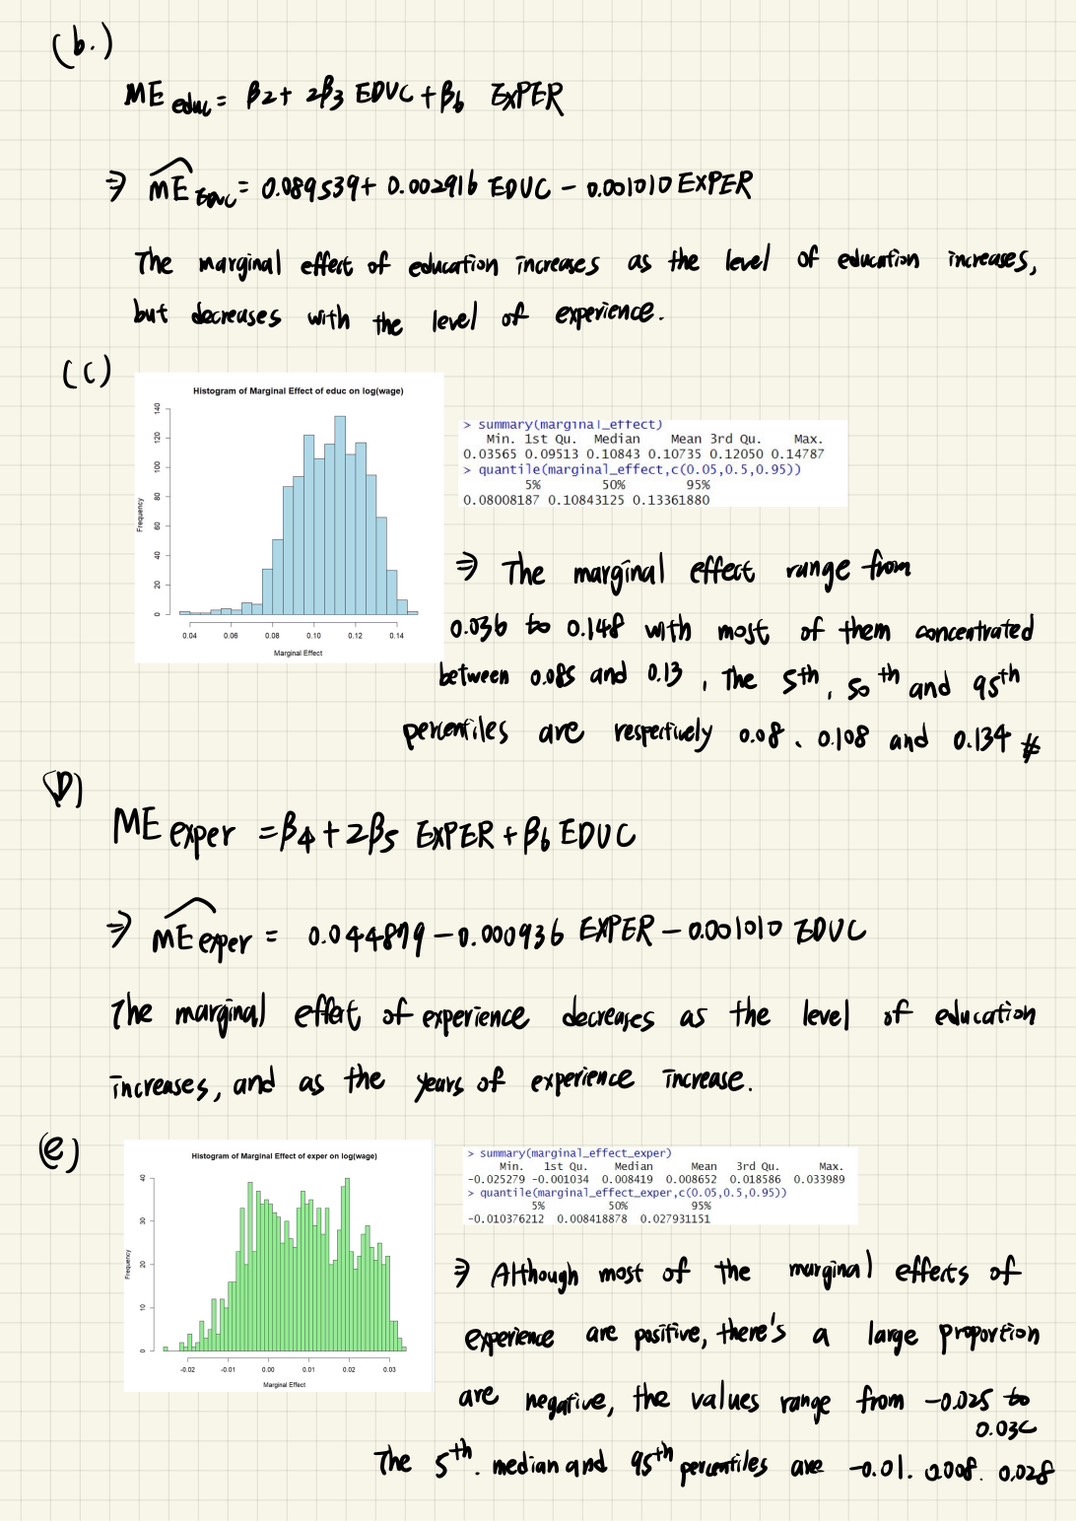 (b.)
ME educ = β2 + 2β3 EDUC + β6 EXPER
⇒ ME EDUC = 0.089539 + 0.002916 EDUC - 0.001010 EXPER
The marginal effect of education increases as the level of education increases,
but decreases with the level of experience.
(c)
Histogram of Marginal Effect of educ on log(wage)
Frequency
0 20 40 60 80 100 120 140
0.04 0.06 0.08 0.10 0.12 0.14
Marginal Effect
> summary(marginal_effect)
Min. 1st Qu. Median Mean 3rd Qu. Max.
0.03565 0.09513 0.10843 0.10735 0.12050 0.14787
> quantile(marginal_effect,c(0.05,0.5,0.95))
5% 50% 95%
0.08008187 0.10843125 0.13361880
⇒ The marginal effect range from
0.036 to 0.148 with most of them concentrated
between 0.085 and 0.13, The 5th, 50th and 95th
percentiles are respectively 0.08、0.108 and 0.134 #
(D)
ME exper = β4 + 2β5 EXPER + β6 EDUC
⇒ ME exper = 0.044879 - 0.000936 EXPER - 0.001010 EDUC
The marginal effect of experience decreases as the level of education
increases, and as the years of experience increase.
(e)
Histogram of Marginal Effect of exper on log(wage)
Frequency
0 10 20 30 40
-0.02 -0.01 0.00 0.01 0.02 0.03
Marginal Effect
> summary(marginal_effect_exper)
Min. 1st Qu. Median Mean 3rd Qu. Max.
-0.025279 -0.001034 0.008419 0.008652 0.018586 0.033989
> quantile(marginal_effect_exper,c(0.05,0.5,0.95))
5% 50% 95%
-0.010376212 0.008418878 0.027931151
⇒ Although most of the marginal effects of
experience are positive, there's a large proportion
are negative, the values range from -0.025 to
The 5th. median and 95th percentiles are -0.01. 0.008. 0.028